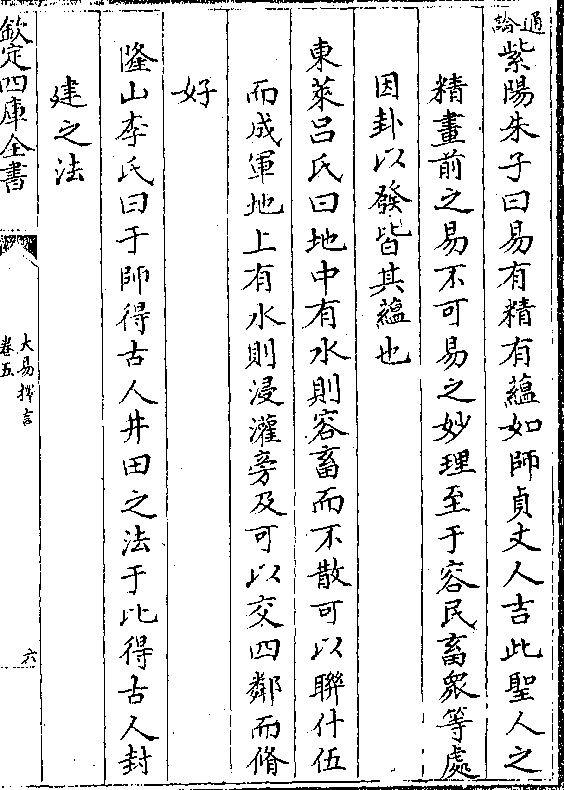 通論
紫陽朱子曰易有精有蘊如師貞丈人吉此聖人之
精畫前之易不可易之妙理至于容民畜眾等處
因卦以發皆其蘊也
東萊吕氏曰地中有水則容畜而不散可以聯什伍
而成軍地上有水則浸灌旁及可以交四鄰而脩
好
隆山李氏曰于師得古人井田之法于比得古人封
建之法
欽定四庫全書
大易擇言
卷五
六